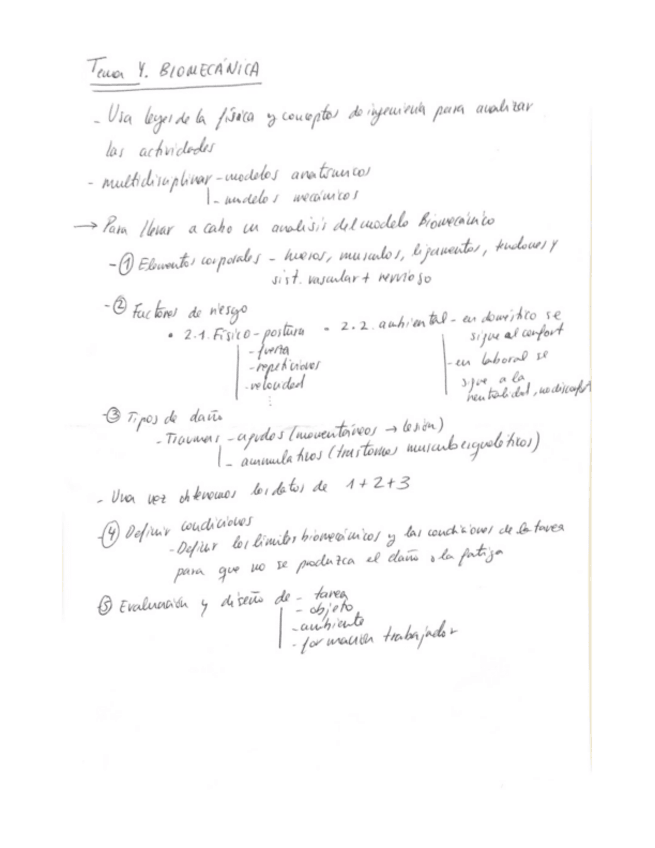 Tema 4. BIOMECÁNICA
- Usa leyes de la física y conceptos de ingeniería para analizar
las actividades
- multidisciplinar - modelos anatomicos
- modelos mecánicos
→ Para llevar a cabo un analisis del modelo Biomecánico
- ① Elementos corporales - huesos, musculos, ligamentos, tendones y
sist. vascular + nervioso
- ② Factores de riesgo
• 2.1. Físico - postura
- fuerza
- repeticiones
- velocidad
⋮
• 2.2. ambiental - en doméstico se
sigue al confort
- en laboral se
sigue a la
neutralidad, no disconfort
- ③ Tipos de daño
- Traumas - agudos (momentáneos → lesión)
- acumulativos (trastornos musculoesqueléticos)
- Una vez obtenemos los datos de 1+2+3
④ Definir condiciones
- Definir los límites biomecánicos y las condiciones de la tarea
para que no se produzca el daño o la fatiga
⑤ Evaluación y diseño de - tarea
- objeto
- ambiente
- formación trabajador